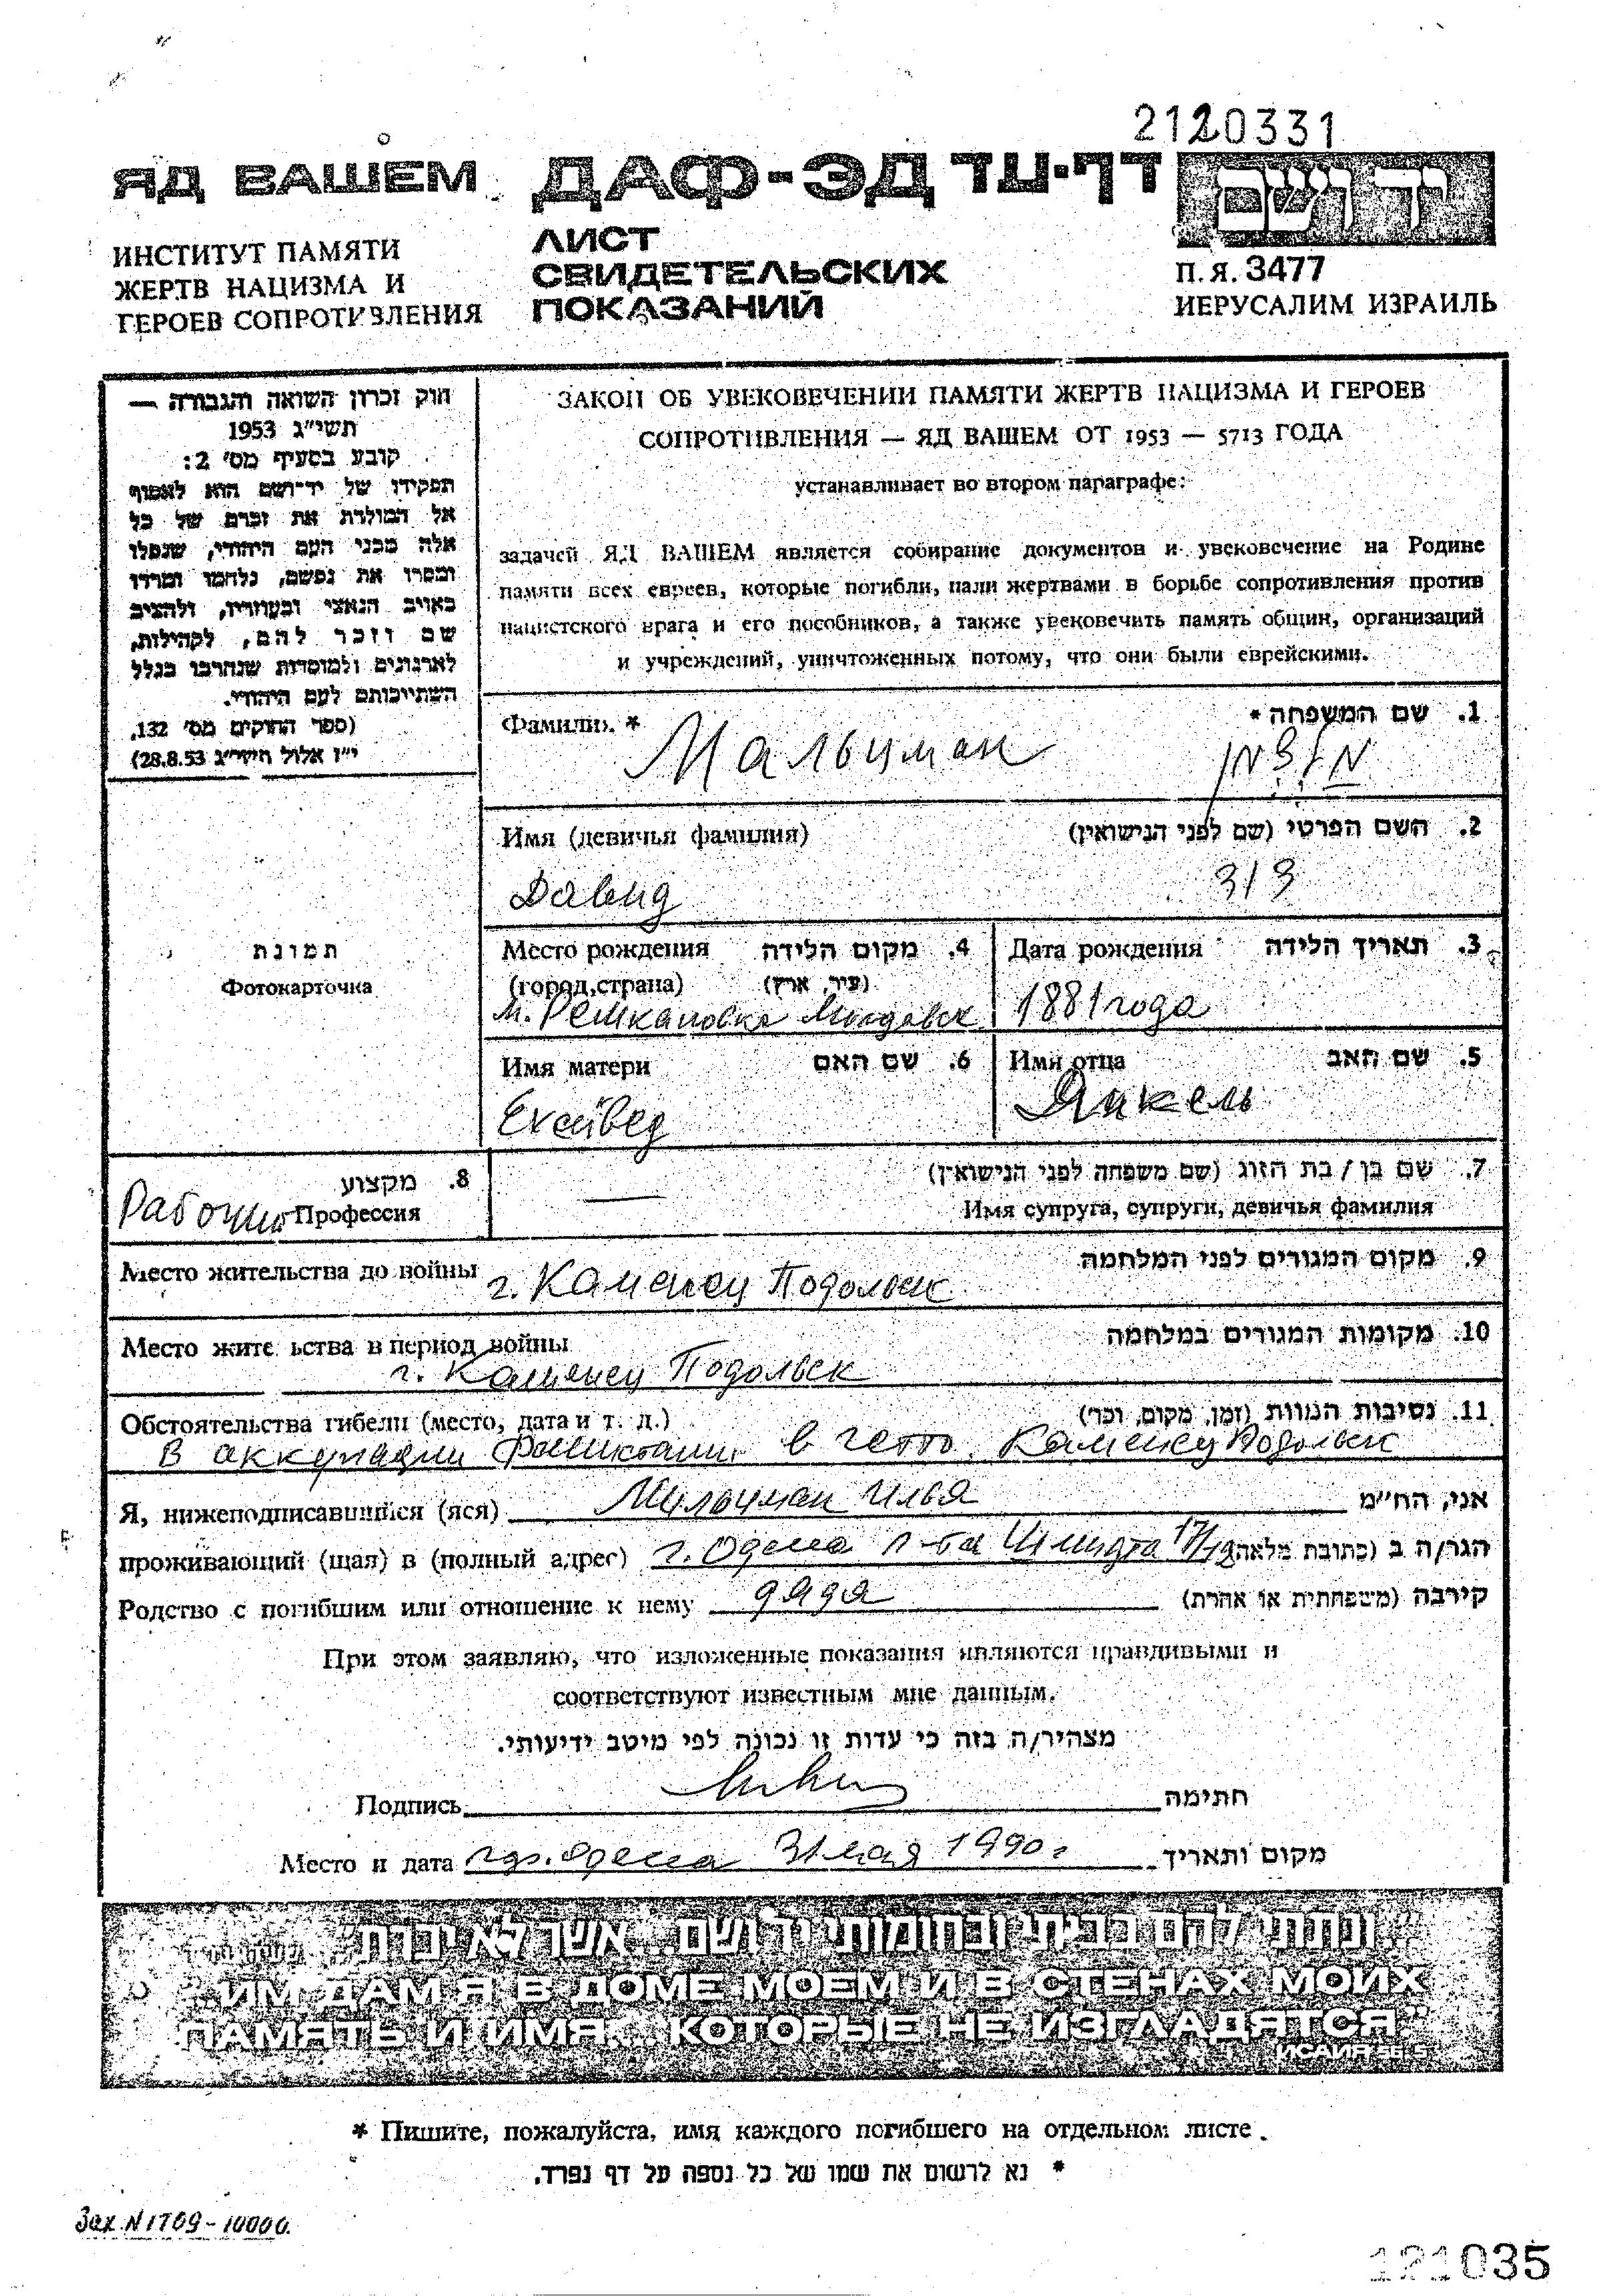 2120331
ЯД ВАШЕМ ДАФ-ЭД דף-עד יד ושם
ИНСТИТУТ ПАМЯТИ
ЖЕРТВ НАЦИЗМА И
ГЕРОЕВ СОПРОТИВЛЕНИЯ
ЛИСТ
СВИДЕТЕЛЬСКИХ
ПОКАЗАНИЙ
П.Я. 3477
ИЕРУСАЛИМ ИЗРАИЛЬ
חוק זכרון השואה והגבורה —
תשי״ג 1953
קובע בסעיף מס׳ 2:
תפקידו של יד-ושם הוא לאסוף
אל המולדת את זכרם של כל
אלה מבני העם היהודי, שנפלו
ומסרו את נפשם, נלחמו ומרדו
באויב הנאצי ובעוזריו, ולהציב
שם וזכר להם, לקהילות,
לארגונים ולמוסדות שנחרבו בגלל
השתייכותם לעם היהודי.
(ספר החוקים מס׳ 132,
י״ז אלול תשי״ג 28.8.53)
ЗАКОН ОБ УВЕКОВЕЧЕНИИ ПАМЯТИ ЖЕРТВ НАЦИЗМА И ГЕРОЕВ
СОПРОТИВЛЕНИЯ — ЯД ВАШЕМ ОТ 1953 — 5713 ГОДА
устанавливает во втором параграфе:
задачей ЯД ВАШЕМ является собирание документов и увековечение на Родине
памяти всех евреев, которые погибли, пали жертвами в борьбе сопротивления против
нацистского врага и его пособников, а также увековечить память общин, организаций
и учреждений, уничтоженных потому, что они были еврейскими.
Фамилия * 1. שם המשפחה *
Мальцман מלצמן
Имя (девичья фамилия) 2. השם הפרטי (שם לפני הנישואין)
Давид דוד
תמונת
Фотокарточка
Место рождения 4. מקום הלידה
(город, страна) (עיר, ארץ)
Дата рождения 3. תאריך הלידה
1881 года
Имя матери 6. שם האם
Ехейвед
Имя отца 5. שם האב
Янкель
8. מקצוע
Рабочий Профессия
7. שם בן / בת הזוג (שם משפחה לפני הנישואין)
— Имя супруга, супруги, девичья фамилия
Место жительства до войны 9. מקום המגורים לפני המלחמה
г. Каменец Подольск
Место жите ьства в период войны 10. מקומות המגורים במלחמה
г. Каменец Подольск
Обстоятельства гибели (место, дата и т. д.) 11. נסיבות המוות (זמן, מקום, וכו׳)
В аккупации фашистами в гетто Каменец Подольск
Я, нижеподписавшийся (яся) Мальцман Илья אני, הח״מ
проживающий (щая) в (полный адрес) г. Одесса п-ба Шмидта 17/19 הגר/ה ב (כתובת מלאה)
Родство с погибшим или отношение к нему дядя קירבה (משפחתית או אחרת)
При этом заявляю, что изложенные показания являются правдивыми и
соответствуют известным мне данным.
מצהיר/ה בזה כי עדות זו נכונה לפי מיטב ידיעותי.
Подпись חתימה
Место и дата гор. Одесса 31 мая 1990 г מקום ותאריך
״ונתתי להם בביתי ובחומותי יד ושם... אשר לא יכרת״
"ИМ ДАМ Я В ДОМЕ МОЕМ И В СТЕНАХ МОИХ
ПАМЯТЬ И ИМЯ... КОТОРЫЕ НЕ ИЗГЛАДЯТСЯ."
ИСАИЯ 56,5
* Пишите, пожалуйста, имя каждого погибшего на отдельном листе.
* נא לרשום את שמו של כל נספה על דף נפרד.
Зак. N 1709 - 10000.
121035